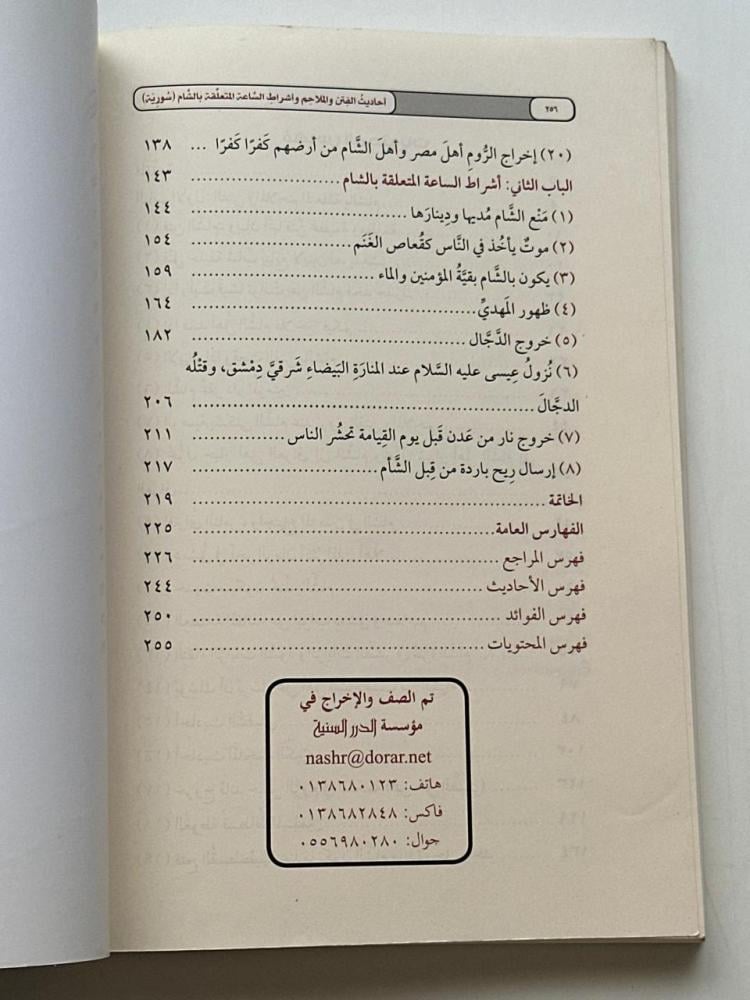 ٢٥٦
أحاديثُ الفِتَن والملاحِم وأشراطِ السَّاعة المتعلِّقة بالشَّام (سُورِيَة)
(٢٠) إخراج الرُّومِ أهلَ مصر وأهلَ الشَّام من أرضهم كَفرًا كَفرًا ... ١٣٨
الباب الثاني: أشراط الساعة المتعلقة بالشام ..................... ١٤٣
(١) مَنْع الشَّام مُديها ودِينارَها ............................... ١٤٤
(٢) موتٌ يأخُذ في النَّاس كقُعاص الغَنَم ..................... ١٥٤
(٣) يكون بالشَّام بقيَّةُ المؤمنين والماء ........................ ١٥٩
(٤) ظهور المَهديِّ ......................................... ١٦٤
(٥) خروج الدَّجَّال ......................................... ١٨٢
(٦) نُزولُ عِيسى عليه السَّلام عند المنارَةِ البَيضاءِ شَرقيَّ دِمْشق، وقتْلُه
الدجَّالَ .................................................. ٢٠٦
(٧) خروج نار من عَدن قَبل يوم القِيامة تحشُر الناس ............... ٢١١
(٨) إرسال رِيح باردة من قِبل الشَّأم ........................... ٢١٧
الخاتمة .................................................... ٢١٩
الفهارس العامة ............................................ ٢٢٥
فهرس المراجع ............................................. ٢٢٦
فهرس الأحاديث ........................................... ٢٤٤
فهرس الفوائد .............................................. ٢٥٠
فهرس المحتويات ........................................... ٢٥٥
تم الصف والإخراج في
مؤسسة الدرر السنية
nashr@dorar.net
هاتف: ٠١٣٨٦٨٠١٢٣
فاكس: ٠١٣٨٦٨٢٨٤٨
جوال: ٠٥٥٦٩٨٠٢٨٠